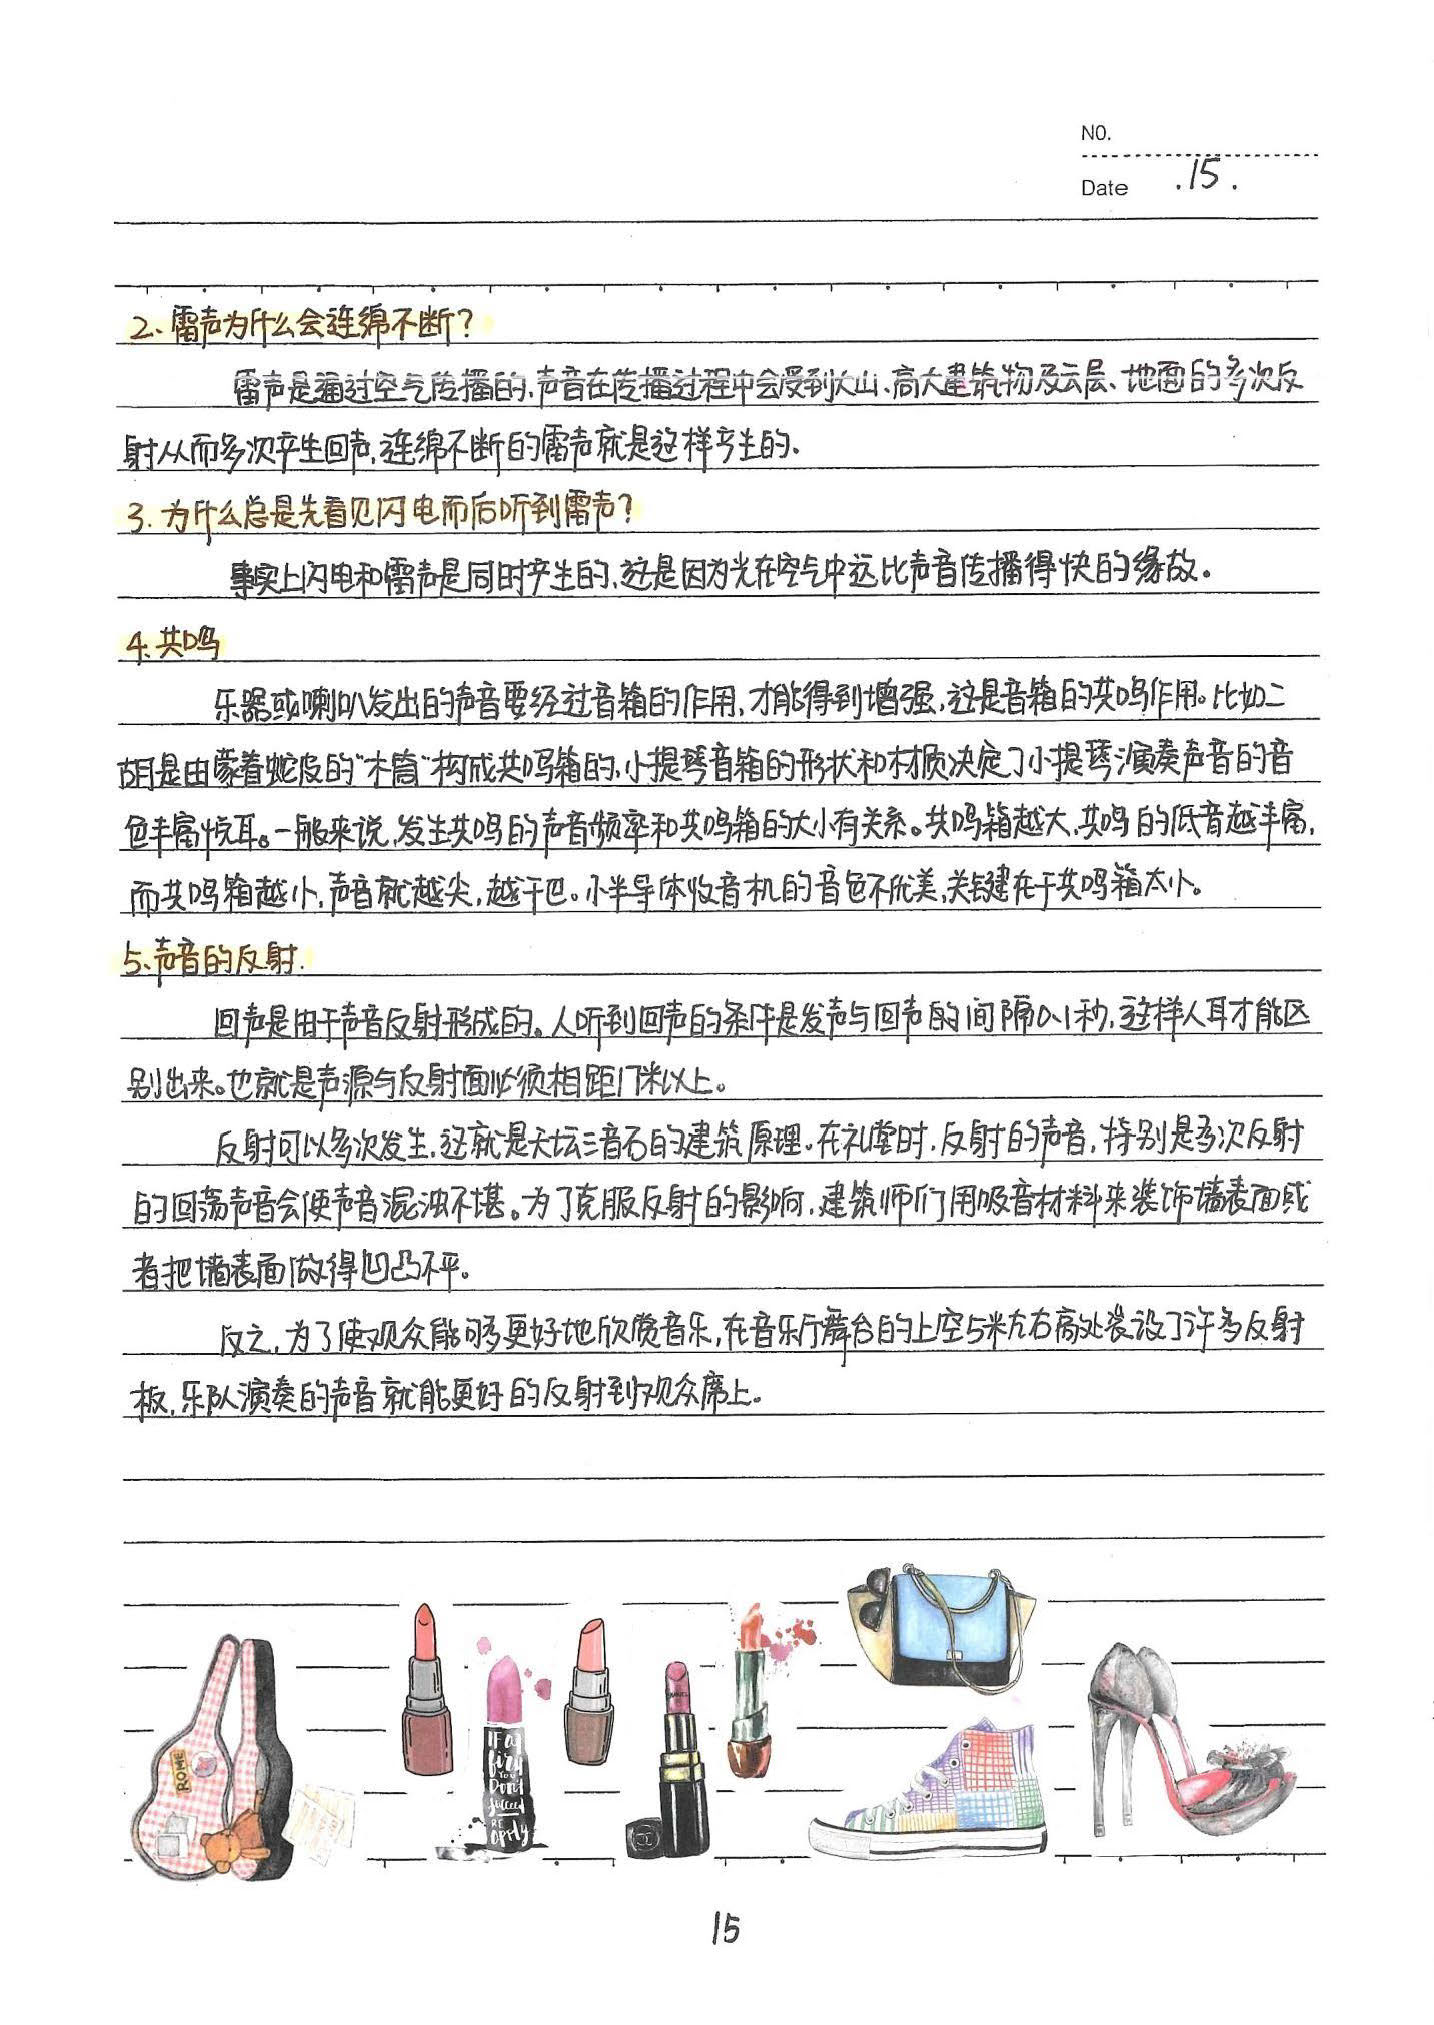 NO.
Date .15.
2、雷声为什么会连绵不断？
雷声是通过空气传播的，声音在传播过程中会受到大山、高大建筑物及云层、地面的多次反
射从而多次产生回声，连绵不断的雷声就是这样产生的。
3.为什么总是先看见闪电而后听到雷声？
事实上闪电和雷声是同时产生的，这是因为光在空气中远比声音传播得快的缘故。
4.共鸣
乐器或喇叭发出的声音要经过音箱的作用，才能得到增强，这是音箱的共鸣作用。比如二
胡是由蒙着蛇皮的“木筒”构成共鸣箱的，小提琴音箱的形状和材质决定了小提琴演奏声音的音
色丰富悦耳。一般来说，发生共鸣的声音频率和共鸣箱的大小有关系。共鸣箱越大，共鸣的低音越丰富，
而共鸣箱越小，声音就越尖，越干巴。小半导体收音机的音色不优美，关键在于共鸣箱太小。
5、声音的反射.
回声是由于声音反射形成的。人听到回声的条件是发声与回声的间隔0.1秒，这样人耳才能区
别出来。也就是声源与反射面必须相距17米以上。
反射可以多次发生，这就是天坛三音石的建筑原理。在礼堂时，反射的声音，特别是多次反射
的回荡声音会使声音混浊不堪。为了克服反射的影响，建筑师们用吸音材料来装饰墙表面或
者把墙表面做得凹凸不平。
反之，为了使观众能够更好地欣赏音乐，在音乐厅舞台的上空5米左右高处装设了许多反射
板，乐队演奏的声音就能更好的反射到观众席上。
ROME
IF at
first
you
Don't
succeed
RE
apply
15